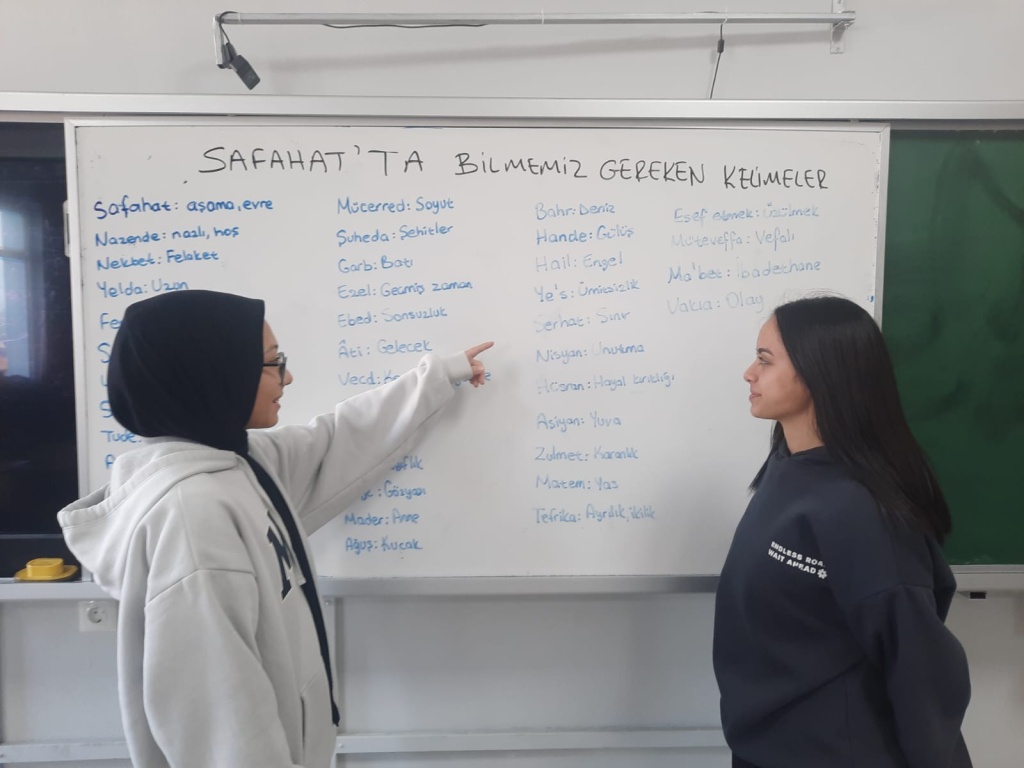 SAFAHAT'TA BİLMEMİZ GEREKEN KELİMELER
Safahat: aşama, evre
Nazende: nazlı, hoş
Nekbet: Felaket
Yelda: Uzun
Tude:
Mücerred: Soyut
Şuheda: Şehitler
Garb: Batı
Ezel: Geçmiş zaman
Ebed: Sonsuzluk
Âti: Gelecek
Vecd:
Gözyaşı
Mader: Anne
Ağuş: Kucak
Bahr: Deniz
Hande: Gülüş
Hail: Engel
Ye's: Ümitsizlik
Serhat: Sınır
Nisyan: Unutma
Hüsran: Hayal kırıklığı
Aşiyan: Yuva
Zulmet: Karanlık
Matem: Yas
Tefrika: Ayrılık, ikilik
Esef etmek: Üzülmek
Müteveffa: Vefalı
Ma'bet: İbadethane
Vakıa: Olay
M
ENDLESS ROA
WAIT AHEAD